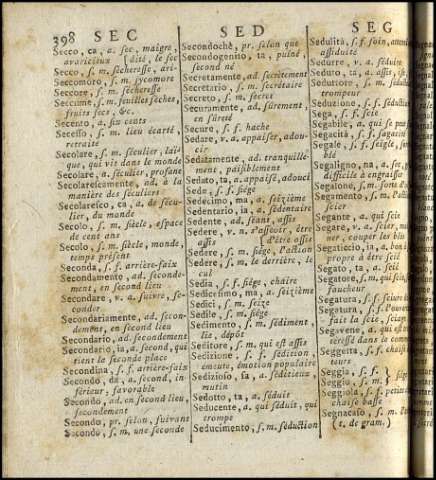 398 SEC SED SEG
Secco, ca, a. sec, maigre,
avaricieux } dité, le sec
Secco, s. m. sécheresse, ari-
Seccomoro, s. m. sycomore
Seccore, s. m. sécheresse
Seccume, s. m. feuilles seches,
fruits secs, &c.
Secento, a. six cents
Secesso, s. m. lieu écarté,
retraite
Secolare, s. m. séculier, laï-
que, qui vit dans le monde
Secolare, a. séculier, profane
Secolarescamente, ad. à la
manière des séculiers
Secolaresco, ca, a. de sécu-
lier, du monde
Secolo, s. m. siècle, espace
de cent ans
Secolo, s. m. siècle, monde,
temps présent
Seconda, s. f. arrière-faix
Secondamento, ad. seconde-
ment, en second lieu
Secondare, v. a. suivre, se-
conder
Secondariamente, ad. secon-
dement, en second lieu
Secondario, ad. secondement
Secondario, ia, a. second, qui
tient la seconde place
Secondina, s. f. arrière-faix
Secondo, da, a. second, in-
férieur, favorable
Secondo, ad. en second lieu,
secondement
Secondo, pr. selon, suivant
Secondo, s. m. une seconde
Secondochè, pr. selon que
Secondogenito, ta, puiné,
second né
Secretamente, ad. secrètement
Secretario, s. m. secrétaire
Secreto, s. m. secret
Securamente, ad. sûrement,
en sûreté
Secure, s. f. hache
Sedare, v. a. appaiser, adou-
cir
Sedatamente, ad. tranquille-
ment, paisiblement
Sedato, ta, a. appaisé, adouci
Sede, s. f. siége
Sedecimo, ma, a. seizième
Sedentario, ia, a. sédentaire
Sedente, ad. séant, assis
Sedere, v. n. s'asseoir, être
assis } d'être assis
Sedere, s. m. siége, l'action
Sedere, s. m. le derrière, le
cul
Sedia, s. f. siége, chaire
Sedicesimo, ma, a. seizième
Sedici, s. m. seize
Sedile, s. m. siége
Sedimento, s. m. sédiment,
lie, dépôt
Seditore, s. m. qui est assis
Sedizione, s. f. sédition,
émeute, émotion populaire
Sedizioso, sa, a. séditieux,
mutin
Sedotto, ta, a. séduit
Seducente, a. qui séduit, qui
trompe
Seducimento, s. m. séduction
Sedulità, s. f. soin,
assiduité
Sedurre, v. a. séduire
Seduto, ta, a. assis,
Seduttore, s. m.
trompeur
Seduzione, s. f. séduction
Sega, s. f. scie
Segabile, a. qui se peut
Segacità, s. f. sagacité
Segale, s. f. seigle,
blé
Segaligno, na, a. sec,
difficile à engraisser
Segalone, s. m. sorte d'
Segamento, s. m. l'action
scier
Segante, a. qui scie
Segare, v. a. scier,
ner, couper les blés
Segaticcio, ia, a. bon
propre à être scié
Segato, ta, a. scié
Segatore, s. m. qui
faucheur
Segatura, s. f. sciure
Segatura, s. f. l'ouverture
fait la scie,
Segavene, a. qui est
Seggetta, s. f. chaise
Seggia, s. f. }
Seggio, s. m. }
Seggiola, s. f. petite
chaise basse
Segnacaso, s. m.
(t. de gram.)